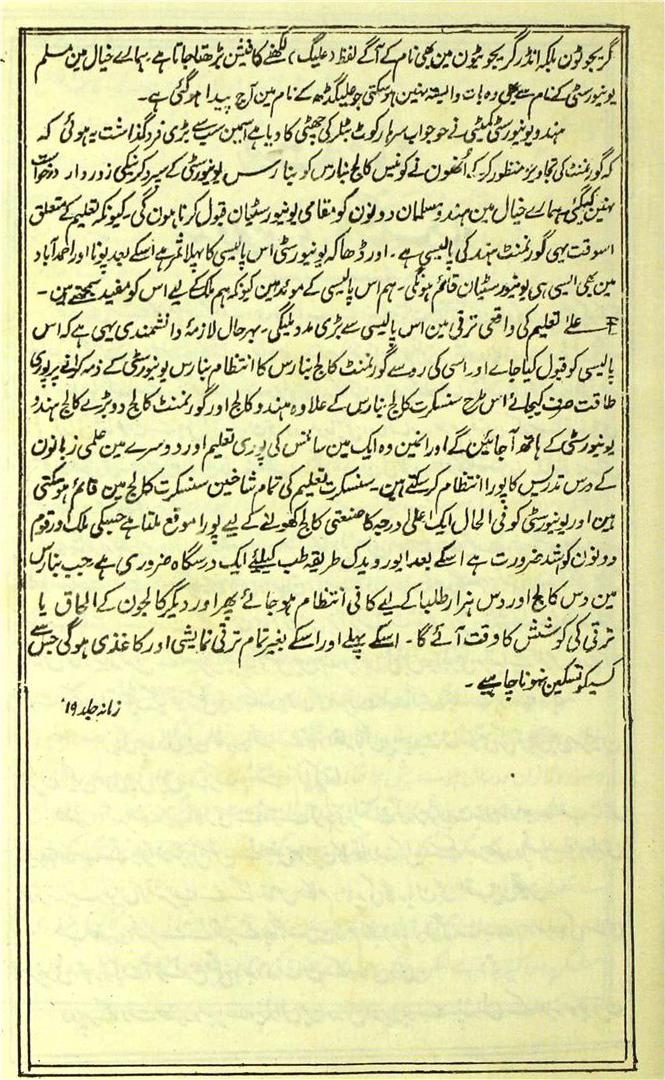 گریجوٹون بلکہ انڈر گریجویٹون مین بھی نام کے آگے لفظ (علیگ) لکھنے کا فیشن بڑھتا جاتا ہے۔ ہمارے خیال مین مسلم
یونیورسٹی کے نام سے وہ بات وابستہ نہین ہوسکتی جو علیگڈھ کے نام مین آج پیدا ہوگئی ہے۔
ہندو یونیورسٹی کمیٹی نے جو جواب سرہارکورٹ بٹلر کی چھٹی کا دیا ہے اسمین سب سے بڑی فروگذاشت یہ ہوئی کہ
کہ گورنمنٹ کی تجاویز منظور کر کے اُنھون نے کوئنس کالج بنارس کو بنارس یونیورسٹی کے سپرد کرنیکی زوردار درخواست
نہین کیگئی ہمارے خیال مین ہندو مسلمان دونون کو مقامی یونیورسٹیان قبول کرنا ہون گی۔ کیونکہ تعلیم کے متعلق
اسوقت یہی گورنمنٹ ہند کی پالیسی ہے۔ اور ڈھاکہ یونیورسٹی اس پالیسی کا پہلا ثمر ہے اسکے بعد پونا اور احمدآباد
مین بھی ایسی ہی یونیورسٹیان قائم ہونگی۔ ہم اس پالیسی کے موئد ہین کیونکہ ہم ملک کے لیے اس کو مفید سمجھتے ہین۔
علےٰ تعلیم کی واقعی ترقی مین اس پالیسی سے بڑی مدد ملیگی۔ بہرحال لازمۂ دانشمندی یہی ہے کہ اس
پالیسی کو قبول کیا جاے اور اسی کی رو سے گورنمنٹ کالج بنارس کا انتظام بنارس یونیورسٹی کے ذمہ کرانے پر پوری
طاقت صرف کیجائے اس طرح سنسکرت کالج بنارس کے علاوہ ہندو کالج اور گورنمنٹ کالج دو بڑے کالج ہندو
یونیورسٹی کے ہاتھ آجائین گے اور انمین وہ ایک مین سائنس کی پوری تعلیم اور دوسرے مین علمی زبانون
کے درس تدریس کا پورا انتظام کرسکتے ہین۔ سنسکرت تعلیم کی تمام شاخین سنسکرت کالج مین قائم ہوسکتی
ہین اور یونیورسٹی کو فی الحال ایک اعلیٰ درجہ کا صنعتی کالج کھولنے کے لیے پورا موقع ملتا ہے جسکی ملک اور قوم
دونون کو اشد ضرورت ہے اسکے بعد ایورویدک طریقہ طب کیلئے ایک درسگاہ ضروری ہے۔ جب بنارس
مین دس کالج اور دس ہزار طلبا کے لیے کافی انتظام ہوجائے پھر اور دیگر کالجون کے الحاق یا
ترقی کی کوشش کا وقت آئے گا۔ اسکے پہلے اور اسکے بغیر تمام ترقی نمایشی اور کاغذی ہوگی جس سے
کسیکو تسکین نہونا چاہیے۔
زمانہ جلد ۱۹